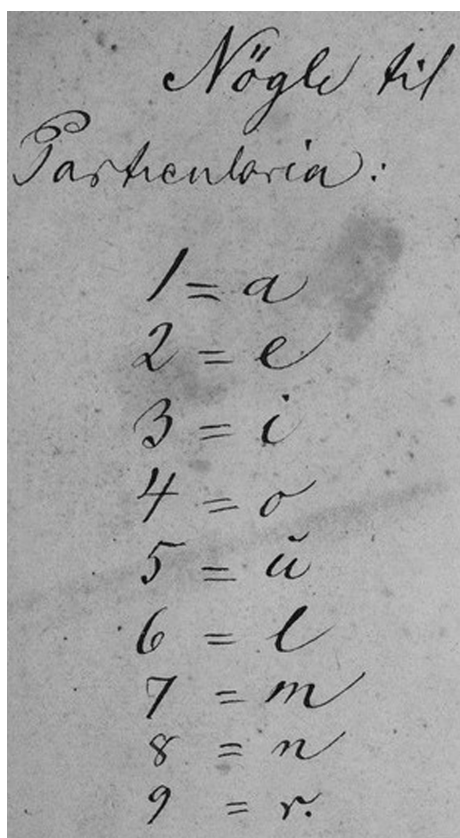 Nögle til
Particularia:
1 = a
2 = e
3 = i
4 = o
5 = ŭ
6 = l
7 = m
8 = n
9 = r.